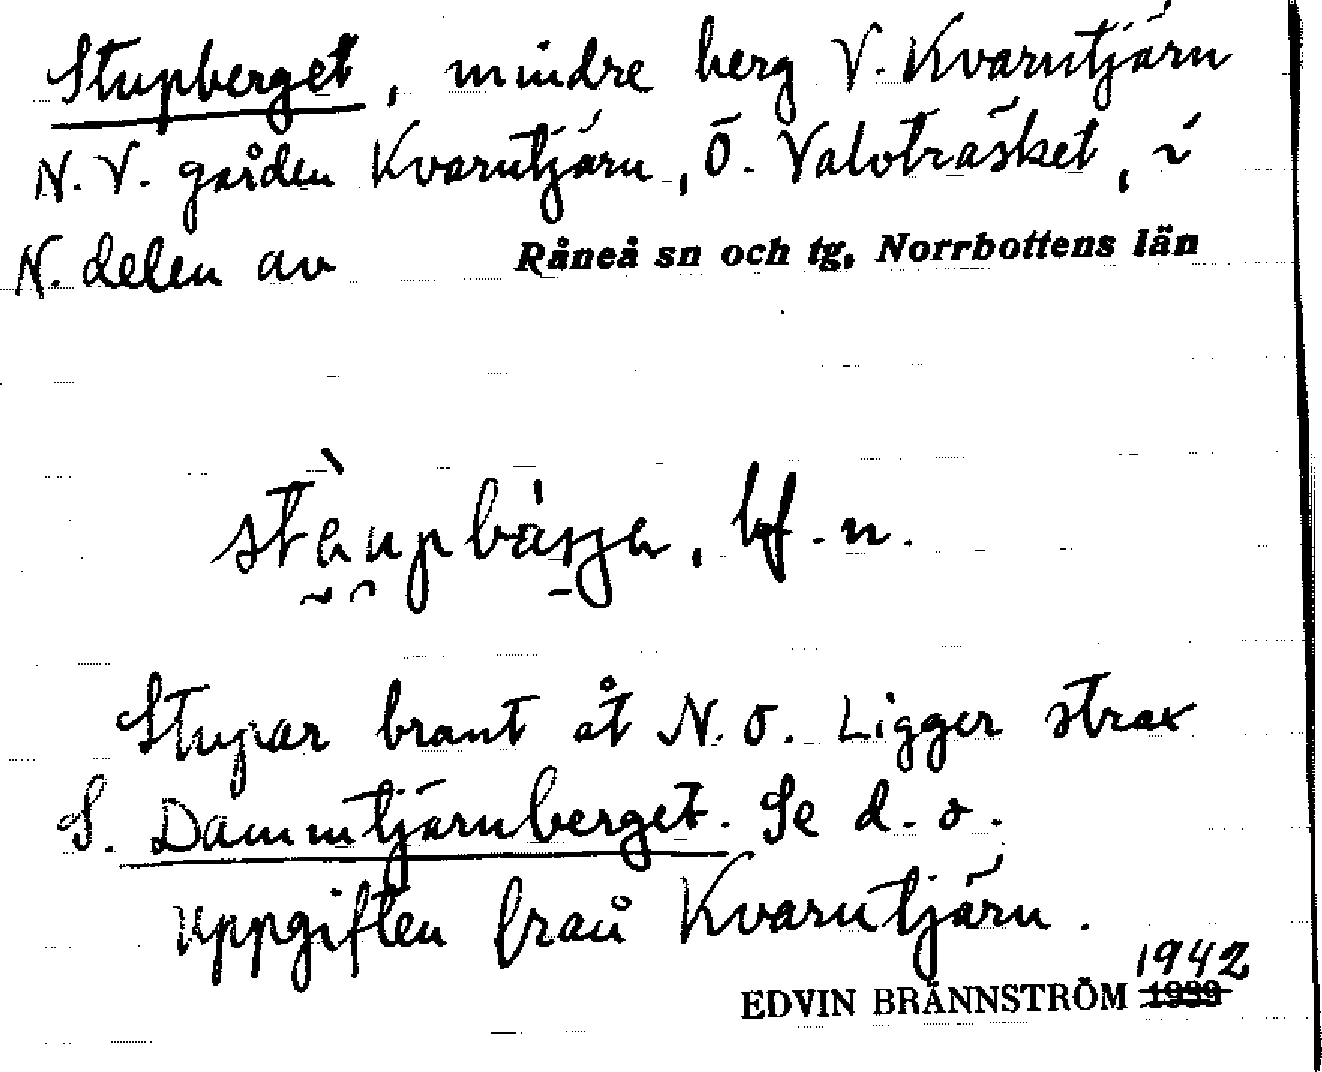 Stupberget, mindre berg V. Kvarntjärn
N.V. gården Kvarntjärn, Ö. Valvträsket, i
N. delen av Råneå sn och tg, Norrbottens län
bf. n.
Stupar brant åt N.O. Ligger strax
S. Dammtjärnberget. Se d. o.
Uppgiften från Kvarntjärn.
1942
EDVIN BRÄNNSTRÖM 1939